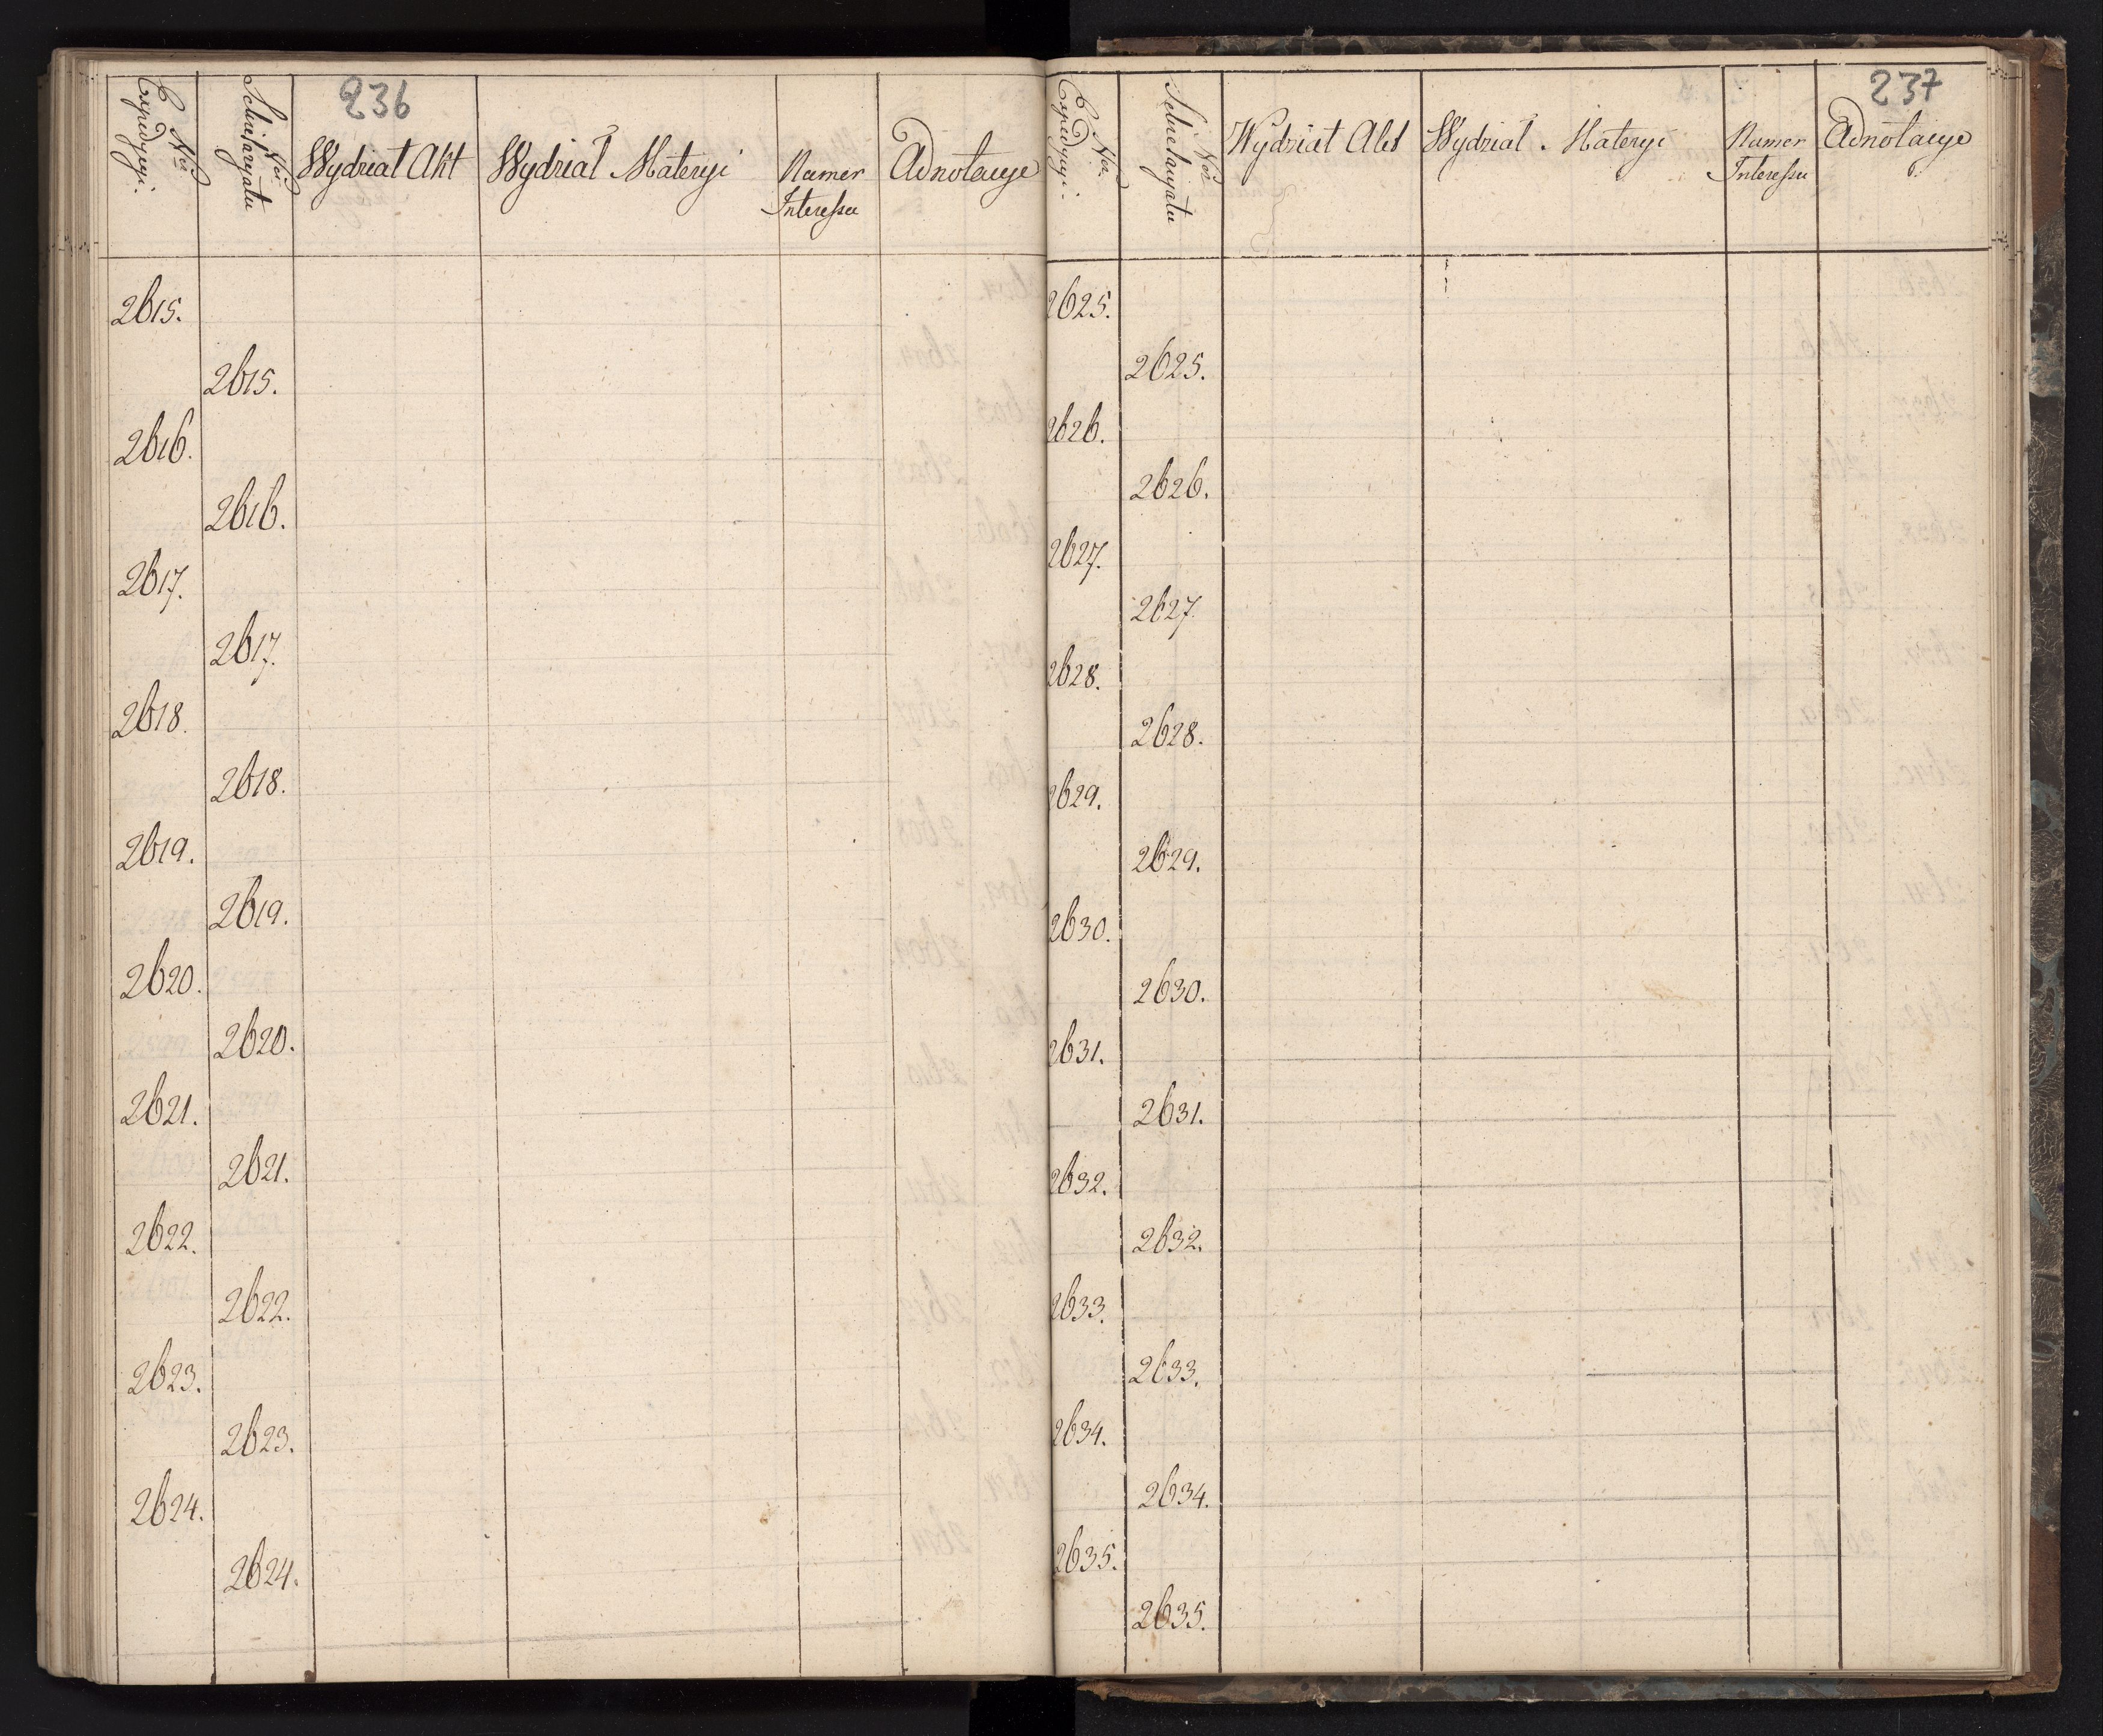 236
Nro Expedycyi.
Nro Sekretaryatu
Wydział Akt
Wydział Materyi
Numer
Interessu
Adnotacye
2615.
2615.
2616.
2616.
2617.
2617.
2618.
2618.
2619.
2619.
2620.
2620.
2621.
2621.
2622.
2622.
2623.
2623.
2624.
2624.
237
Nro Expedycyi.
Nro Sekretaryatu
Wydział Akt
Wydział Materyi
Numer
Interessu
Adnotacye
2625.
2625.
2626.
2626.
2627.
2627.
2628.
2628.
2629.
2629.
2630.
2630.
2631.
2631.
2632.
2632.
2633.
2633.
2634.
2634.
2635.
2635.